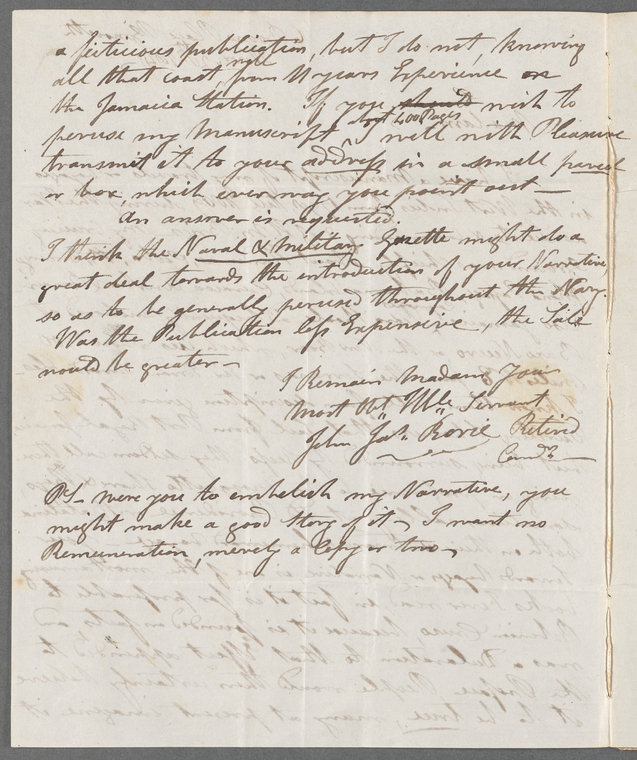 a ficticious publication, but I do not, knowing
all that coast, from 11 years Experience on
the Jamaica Station. If you should wish to
peruse my Manuscript abt 400 Pages I will with Pleasure
transmit it to your address in a small parcel
or box, which ever way you point out—
An answer is requested.
I think the Naval & Military Gazette might do a
great deal towards the introduction of your Narrative,
so as to be generally perused throughout the Navy.
Was the Publication less Expensive, the Sale
would be greater—
I Remain Madam Your
most Obt Hble Servant
John Jas Retired
Comdr
PS were you to embelish my Narrative, you
might make a good Story of it—, I want no
Remuneration, merely a Copy or two—